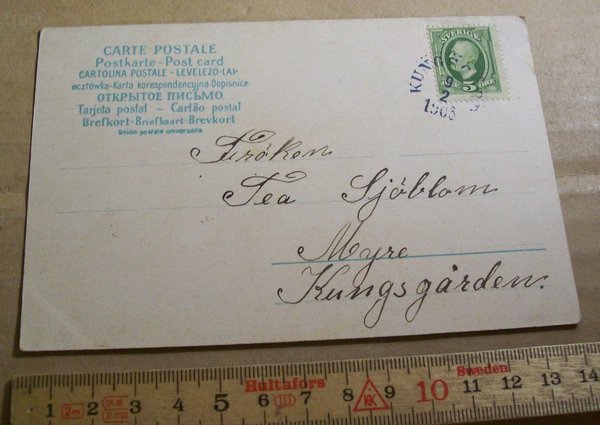 CARTE POSTALE
Postkarte - Post card
CARTOLINA POSTALE - LEVELEZO-LAP
ocztówka-Karta korespondencyjna-Dopisnice
ОТКРЫТОЕ ПИСЬМО.
Tarjeta postal - Cartão postal
Brefkort-Briefkaart-Brevkort
Union postale universelle
SVERIGE
5
KUN
9
2
1905
Fröken
Tea Sjöblom
Myre
Kungsgården.
Hultafors
Sweden
1 2m 2 3 4 5 6 7 8 9 10 11 12 13 14